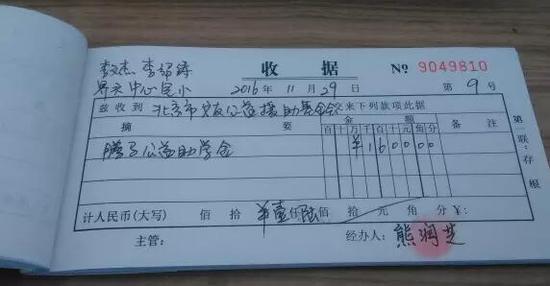 李文杰 李
收据 № 9049810
界头中心完小 2016年11月29日 第9号
兹收到 北京市 公益援助基金会交来下列款项此据
摘要 金额 备注
百十万千百十元角分
公益助学金 ¥160000
计人民币(大写) 佰 拾 ¥壹仟陆佰 拾 元 角 分 ¥:
主管: 经办人: 熊润芝
第一联:存根